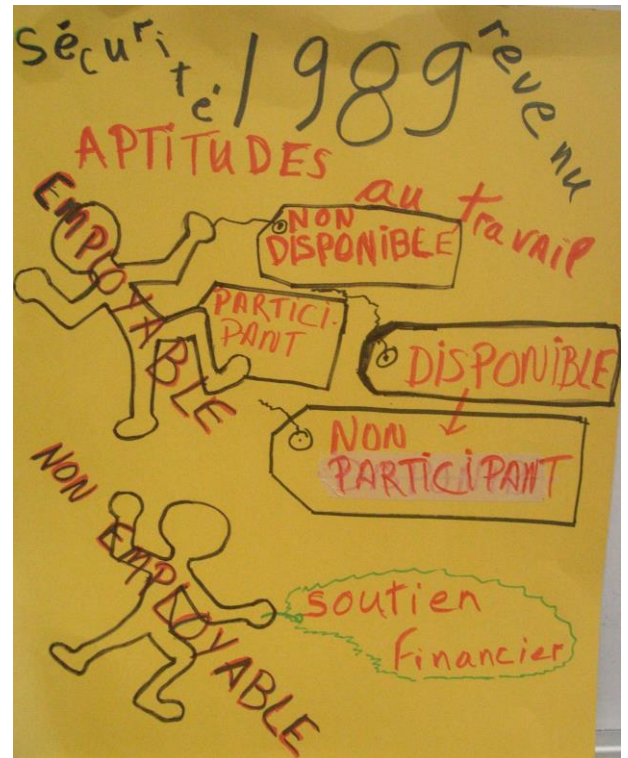 Sécurité 1989 revenu
APTiTUDES
au travail
EMPLOYABLE
NON
DISPONiBLE
PARTICI-
PANT
DiSPONiBLE
NON
PARTiCiPANT
NON EMPLOYABLE
soutien
financier